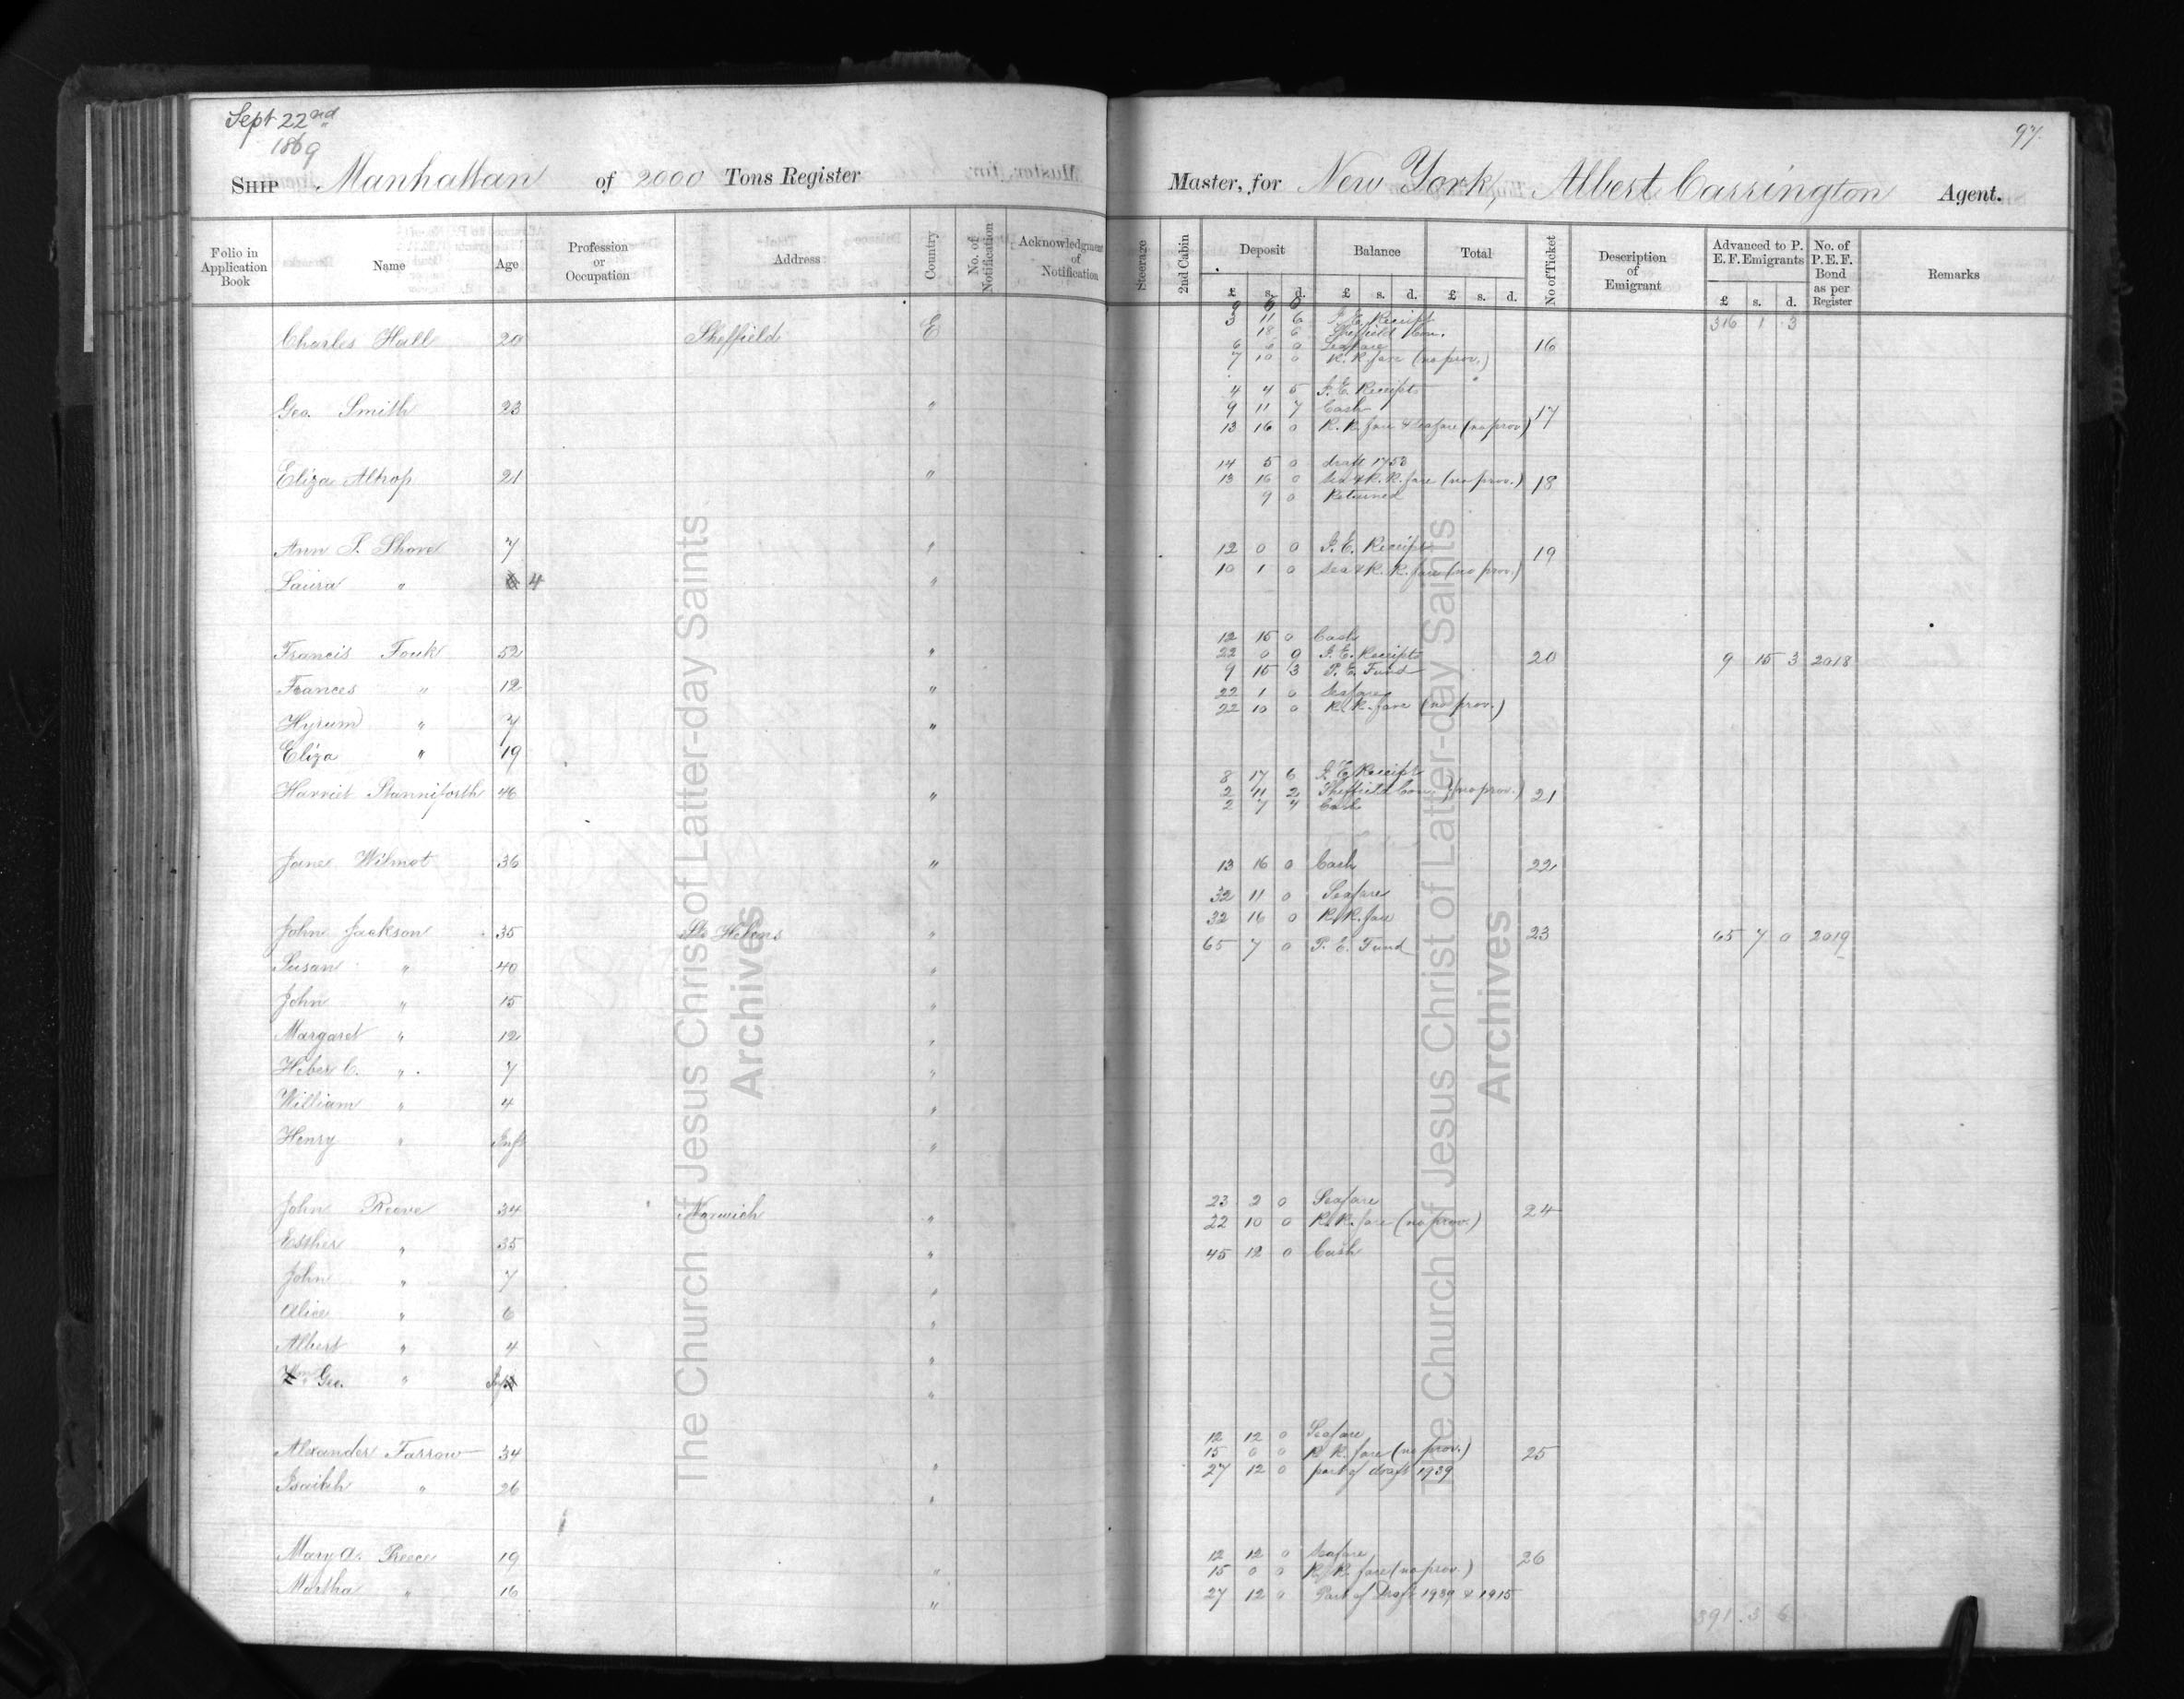 Sept 22nd
1869
97.
SHIP Manhattan of 2000 Tons Register
Master, for New York, Albert Carrington Agent.
Folio in Application Book Name Age Profession or Occupation Address Country No. of Notification Acknowledgment of Notification
Steerage 2nd Cabin Deposit Balance Total No of Ticket Description of Emigrant Advanced to P. E. F. Emigrants No. of P. E. F. Bond as per Register Remarks
£ s. d. £ s. d. £ s. d. £ s. d.
316 1 3
3 11 6 I. E. Receipt
18 6 Sheffield Con.
Charles Hall 20 Sheffield E
6 6 0 Seafare 16
7 10 0 R. R. fare (no prov.)
4 4 5 I. E. Receipts
Geo. Smith 23 "
9 11 7 Cash 17
13 16 0 R. R. fare & Seafare (no prov)
14 5 0 draft 1753
Eliza Althop 21 "
13 16 0 Sea & R. R. fare (no prov.) 18
9 0 Returned
Ann S. Shove 7 "
12 0 0 I. E. Receipt 19
10 1 0 Sea & R. R. fare (no prov.)
Laura " 4 "
12 15 0 Cash
Francis Fouk 52 "
22 0 9 I. E. Receipts 20 9 15 3 2018
9 15 3 P. E. Fund
Frances " 12 "
22 1 0 Seafare
22 10 0 R. R. fare (no prov.)
Hyrum " 7 "
Eliza " 19
8 17 6 I. E. Receipt
Harriet Stanniforth 46 "
2 11 2 Sheffield Con. (no prov.) 21
2 7 4 Cash
Jane Wilmot 36 "
13 16 0 Cash 22
32 11 0 Seafare
32 16 0 R. R. fare
John Jackson 35 St. Helens "
65 7 0 P. E. Fund 23 65 7 0 2019
Susan " 40 "
John " 15 "
Margaret " 12 "
Heber C. " 7 "
William " 4 "
Henry " Inft "
John Reeve 34 Norwich "
23 2 0 Seafare 24
22 10 0 R. R. fare (no prov.)
Esther " 35 "
45 12 0 Cash
John " 7 "
Alice " 6 "
Albert " 4 "
Geo. " "
12 12 0 Seafare
Alexander Farrow 34 "
15 0 0 R. R. fare (no prov.) 25
27 12 0 part of draft 1939
" 26 "
Mary A. Preece 19 "
12 12 0 Seafare 26
15 0 0 R. R. fare (no prov.)
Martha " 16 "
27 12 0 Part of Draft 1939 & 1915
391 3 6
The Church of Jesus Christ of Latter-day Saints
Archives
The Church of Jesus Christ of Latter-day Saints
Archives